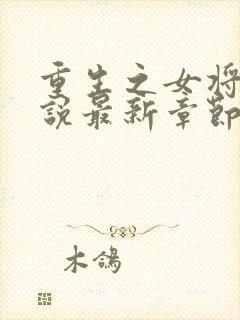 重生之女将
說最新章節
木鴿